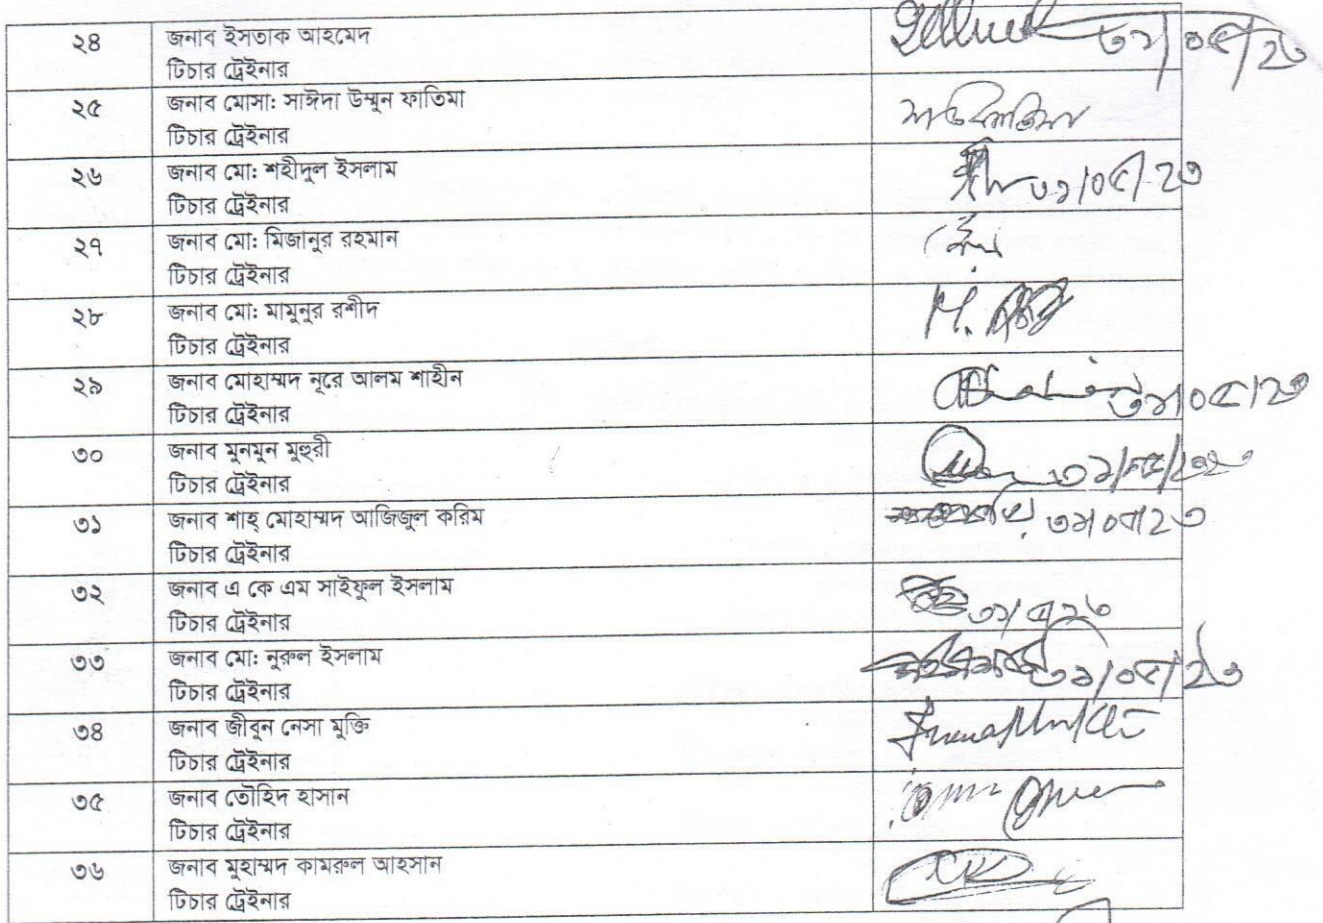 ২৪ জনাব ইসতাক আহমেদ
টিচার ট্রেইনার
৩১/০৫/২৩
২৫ জনাব মোসা: সাঈদা উম্মুন ফাতিমা
টিচার ট্রেইনার
২৬ জনাব মো: শহীদুল ইসলাম
টিচার ট্রেইনার
৩১/০৫/২৩
২৭ জনাব মো: মিজানুর রহমান
টিচার ট্রেইনার
২৮ জনাব মো: মামুনুর রশীদ
টিচার ট্রেইনার
২৯ জনাব মোহাম্মদ নূরে আলম শাহীন
টিচার ট্রেইনার
৩১/০৫/২৩
৩০ জনাব মুনমুন মুহুরী
টিচার ট্রেইনার
৩১ জনাব শাহ্ মোহাম্মদ আজিজুল করিম
টিচার ট্রেইনার
৩১/০৫/২৩
৩২ জনাব এ কে এম সাইফুল ইসলাম
টিচার ট্রেইনার
৩১/৫/২৩
৩৩ জনাব মো: নুরুল ইসলাম
টিচার ট্রেইনার
৩১/০৫/২৩
৩৪ জনাব জীবুন নেসা মুক্তি
টিচার ট্রেইনার
৩৫ জনাব তৌহিদ হাসান
টিচার ট্রেইনার
৩৬ জনাব মুহাম্মদ কামরুল আহসান
টিচার ট্রেইনার